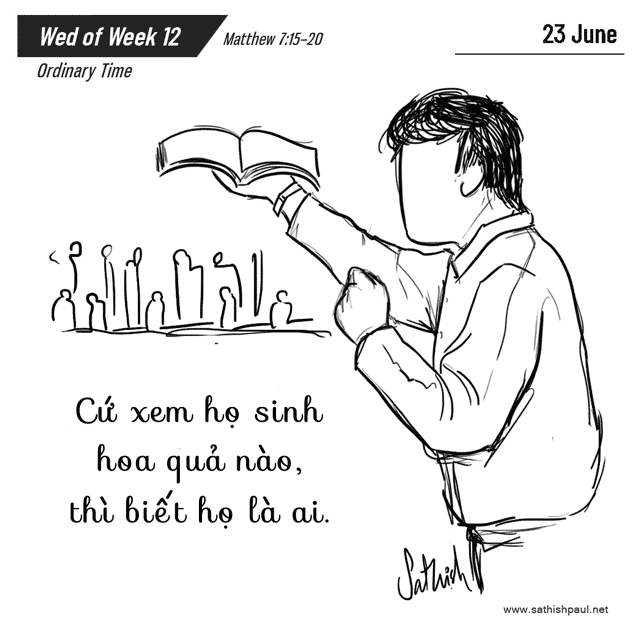 Wed of Week 12
Matthew 7:15–20
23 June
Ordinary Time
Cứ xem họ sinh
hoa quả nào,
thì biết họ là ai.
Sathish
www.sathishpaul.net